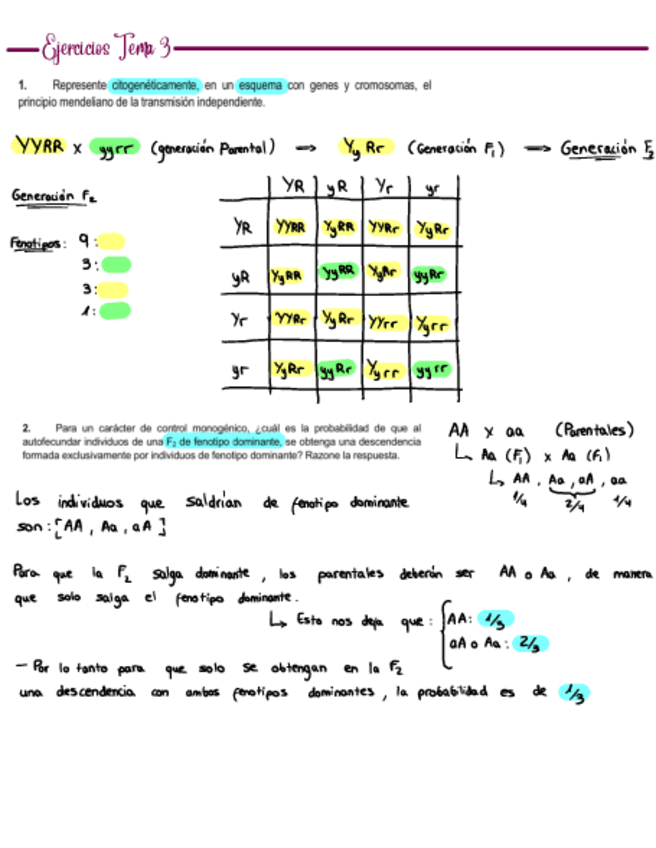 Ejercicios Tema 3
1. Represente citogenéticamente, en un esquema con genes y cromosomas, el
principio mendeliano de la transmisión independiente.
YYRR x yyrr (generación Parental) → Yy Rr (Generación F₁) → Generación F₂
Generación F₂
Fenotipos: 9:
3:
3:
1:
YR yR Yr yr
YR YYRR YyRR YYRr YyRr
yR YyRR yyRR YyRr yyRr
Yr YYRr YyRr YYrr Yyrr
yr YyRr yyRr Yyrr yyrr
2. Para un carácter de control monogénico, ¿cuál es la probabilidad de que al
autofecundar individuos de una F₂ de fenotipo dominante, se obtenga una descendencia
formada exclusivamente por individuos de fenotipo dominante? Razone la respuesta.
AA x aa (Parentales)
↳ Aa (F₁) x Aa (F₁)
↳ AA, Aa, aA, aa
1/4 2/4 1/4
Los individuos que saldrían de fenotipo dominante
son: [AA, Aa, aA]
Para que la F₂ salga dominante, los parentales deberán ser AA o Aa, de manera
que solo salga el fenotipo dominante.
↳ Esto nos deja que: { AA: 1/3
aA o Aa: 2/3
- Por lo tanto para que solo se obtengan en la F₂
una descendencia con ambos fenotipos dominantes, la probabilidad es de 1/3